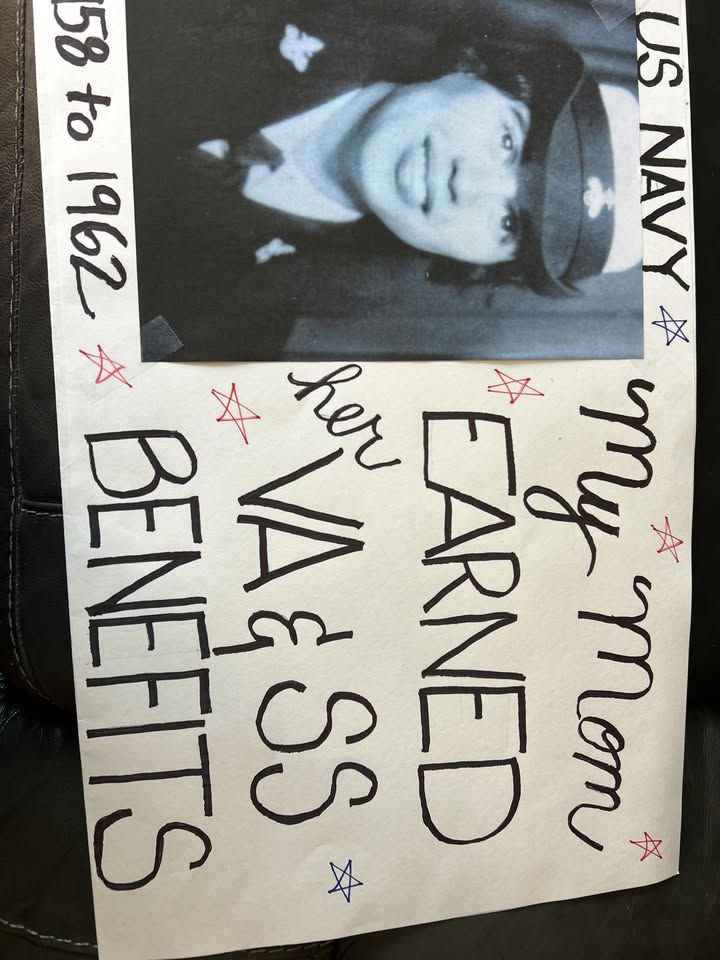 US NAVY
58 to 1962
My Mom
EARNED
her
VA & SS
BENEFITS